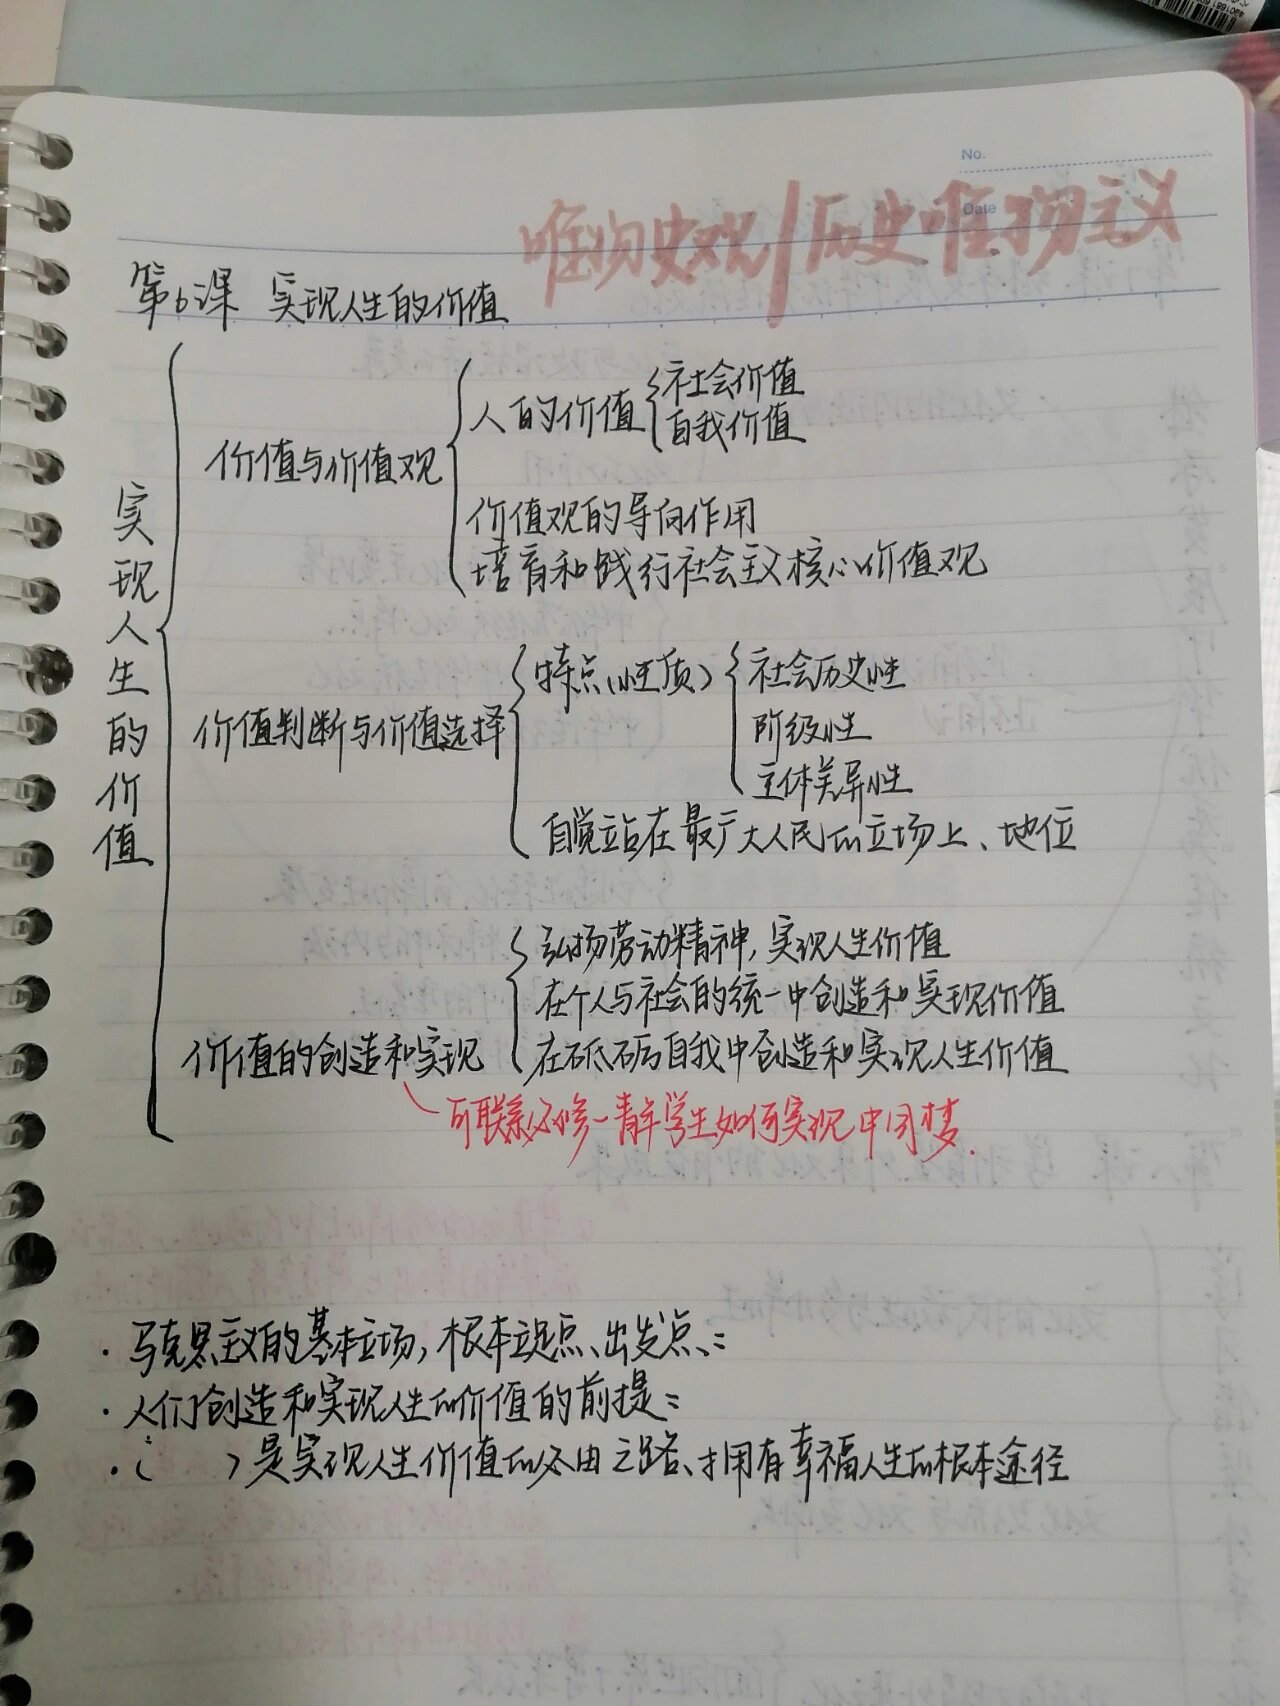 No.
Date
唯物史观/历史唯物主义
第6课 实现人生的价值
实现人生的价值
价值与价值观
人的价值
社会价值
自我价值
价值观的导向作用
培育和践行社会主义核心价值观
价值判断与价值选择
特点(性质)
社会历史性
阶级性
主体差异性
自觉站在最广大人民的立场上、地位
价值的创造和实现
弘扬劳动精神,实现人生价值
在个人与社会的统一中创造和实现价值
在砥砺自我中创造和实现人生价值
可联系必修一青年学生如何实现中国梦.
·马克思主义的基本立场,根本立足点、出发点、:
·人们创造和实现人生的价值的前提:
·( )是实现人生价值的必由之路、拥有幸福人生的根本途径